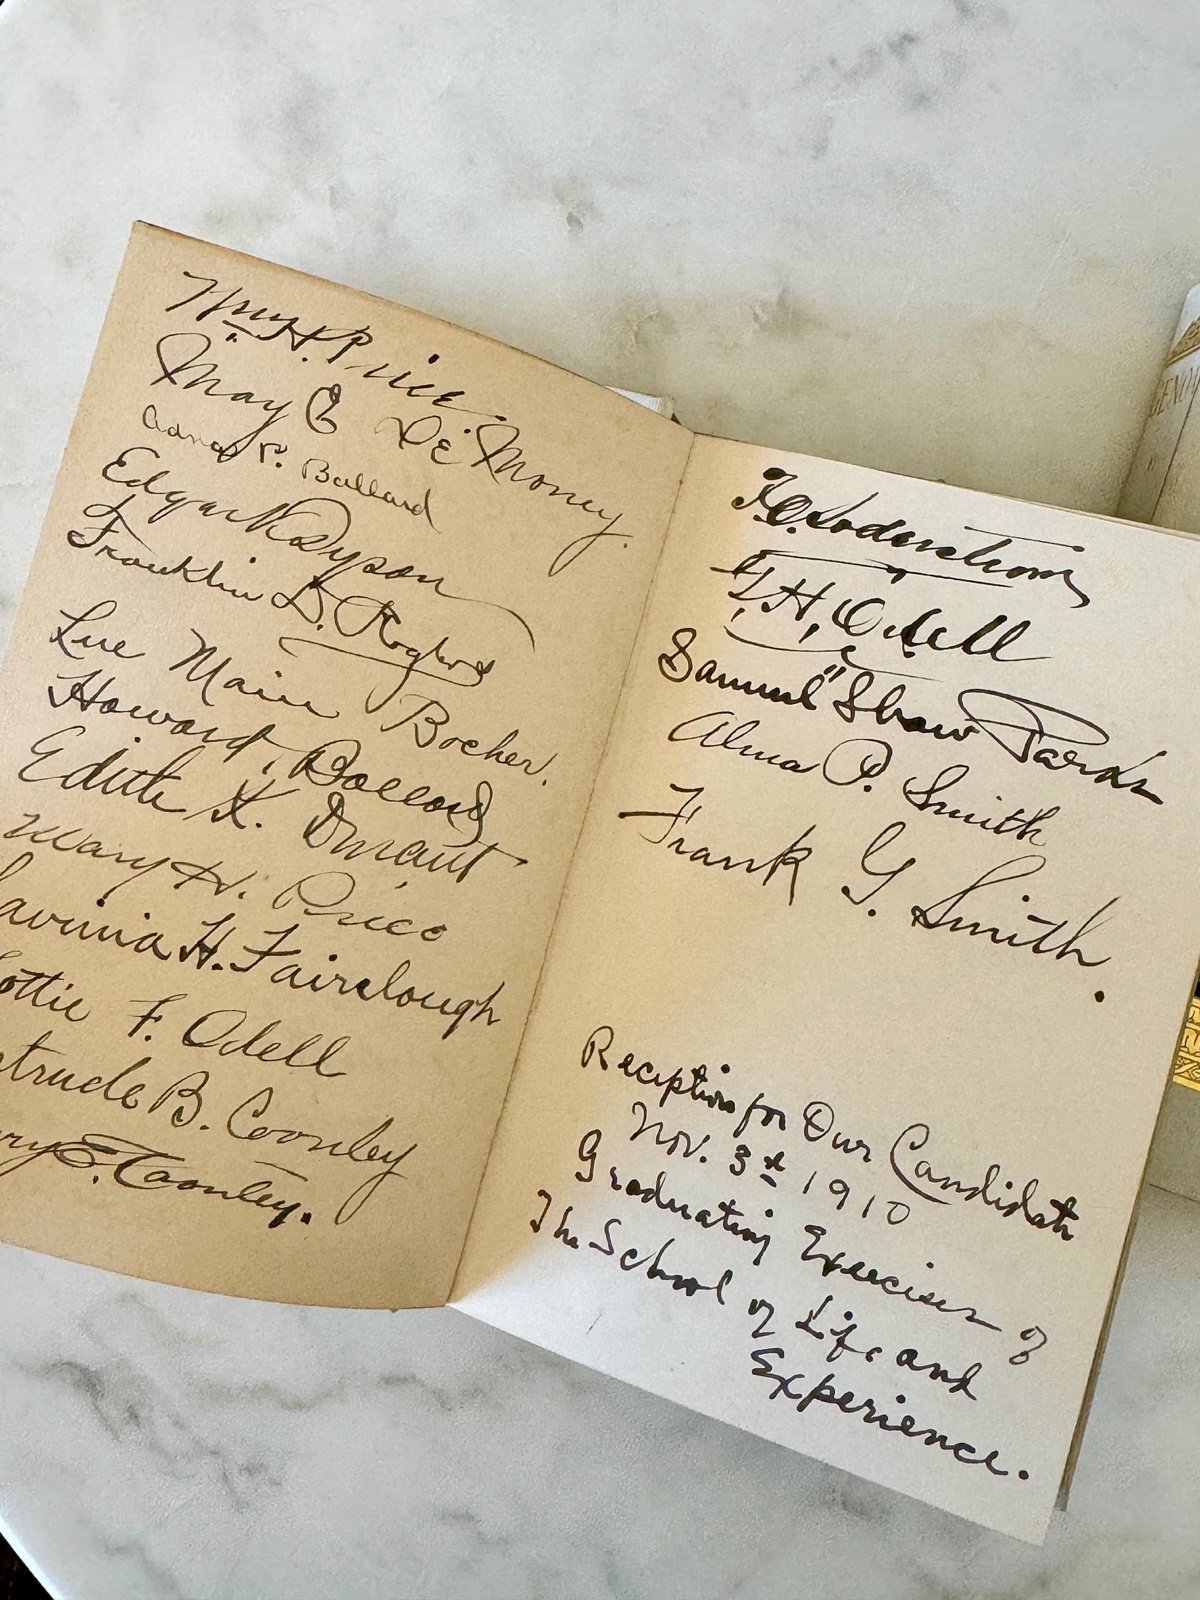 Wm. H. Price.
May E De Money.
P. Ballard
Edgar K Dyson
Franklin D.
Lue Marie Bocher.
Howard, Ballard
Edith K.
Mary H. Price
Lavinia H. Fairclough
Lottie F. Odell
Gertrude B. Coonley
E. Coonley.
Soderstrom
T, H, Odell
Samuel "Shaw Pardu
Alma P. Smith
Frank G. Smith.
Reception for Our Candidate
Nov. 3d 1910
Graduating Exercises of
The School of Life and
Experience.
GENU